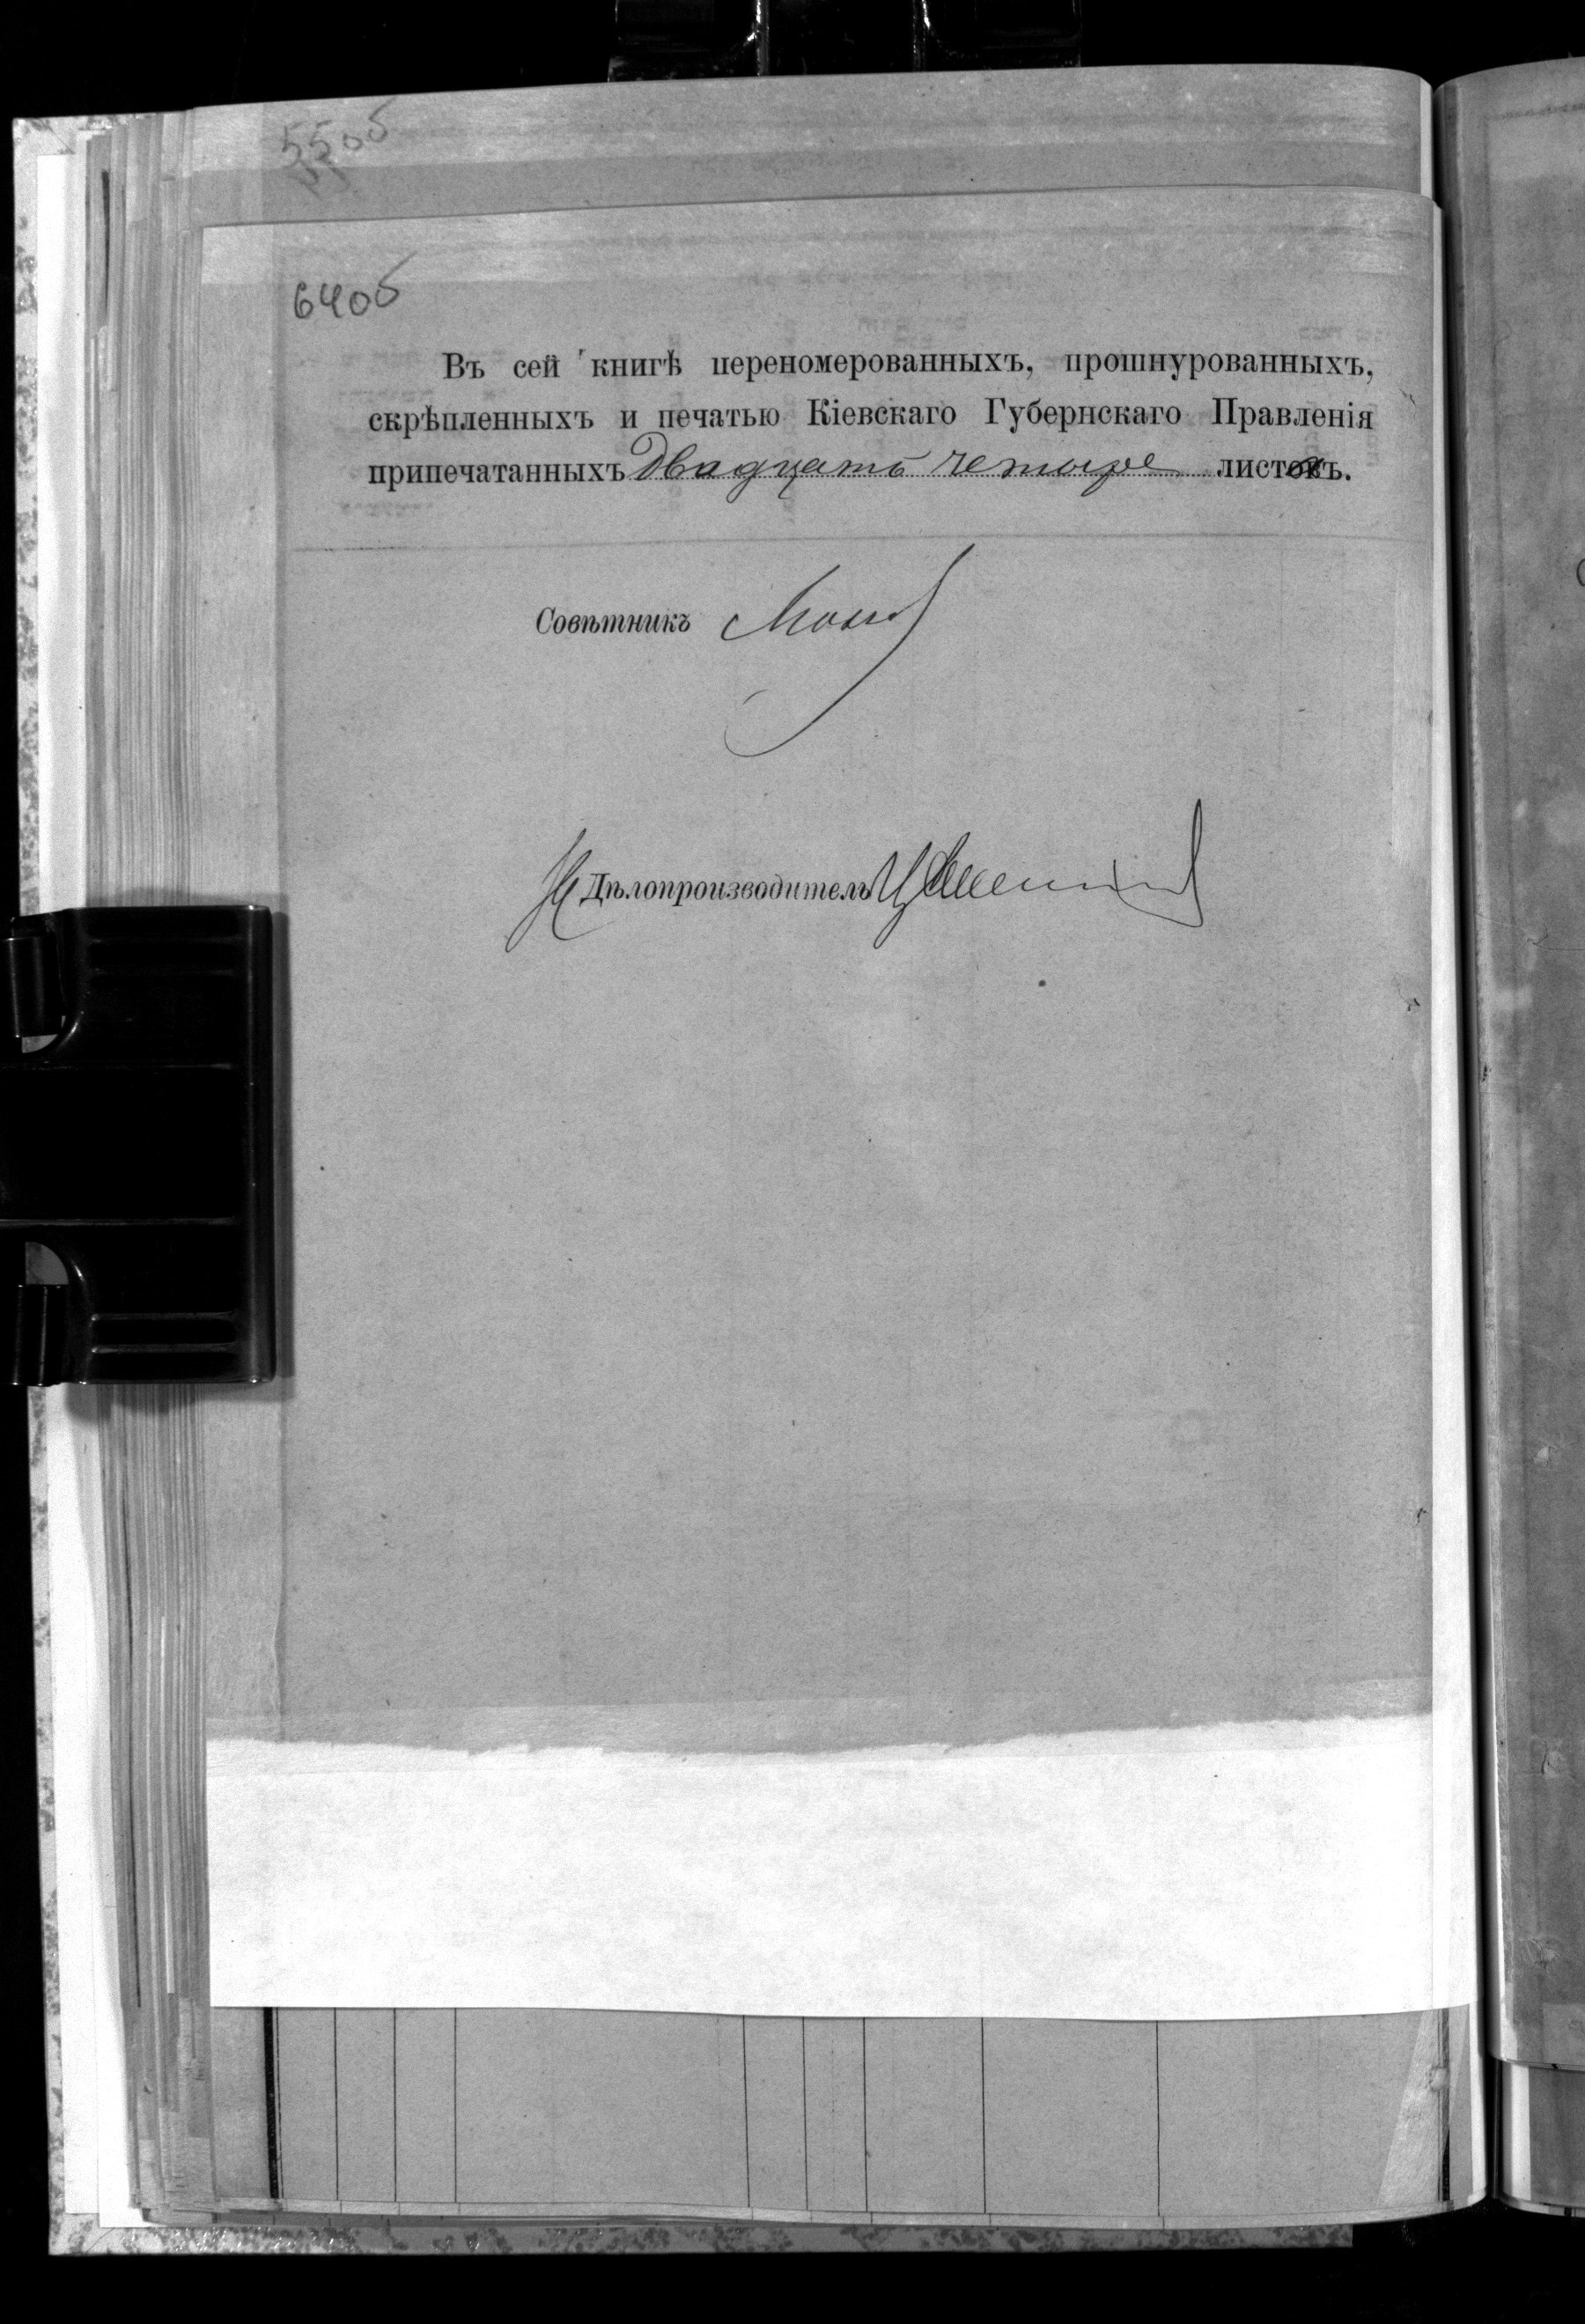 55об
64об
Въ сей книгѣ переномерованныхъ, прошнурованныхъ,
скрѣпленныхъ и печатью Кіевскаго Губернскаго Правленія
припечатанныхъ двадцать четыре листовъ.
Совѣтникъ
Дѣлопроизводитель